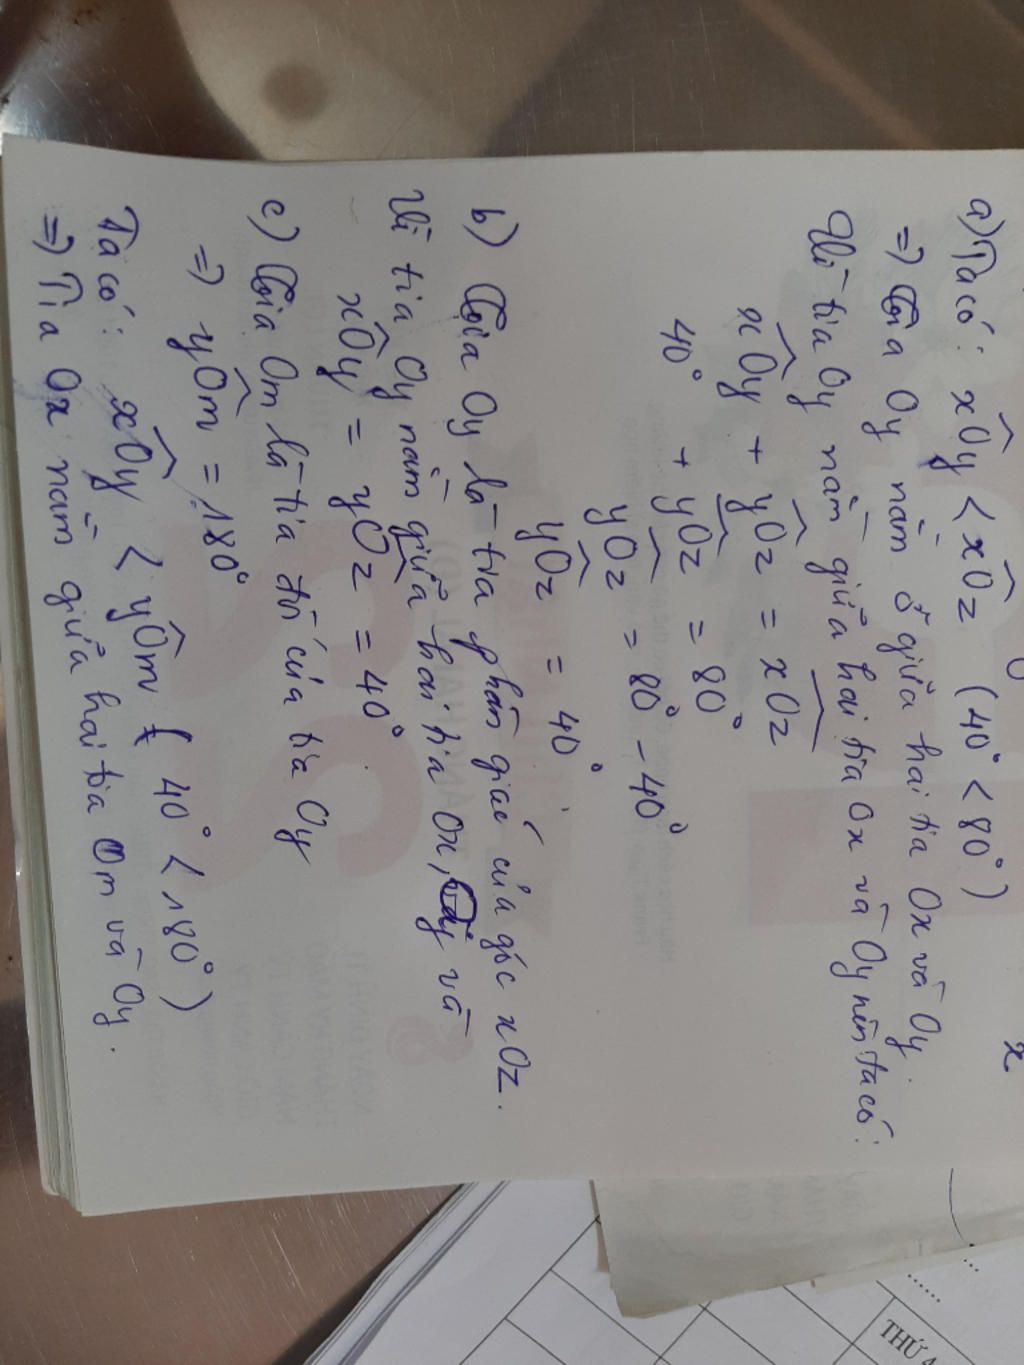 a) Ta có: xOy < xOz (40° < 80°)
=> Tia Oy nằm ở giữa hai tia Ox và Oy.
Vì tia Oy nằm giữa hai tia Ox và Oy nên ta có:
xOy + yOz = xOz
40° + yOz = 80°
yOz = 80° - 40°
yOz = 40°
b) Tia Oy là tia phân giác của góc xOz.
Vì tia Oy nằm giữa hai tia Ox, và
xOy = yOz = 40°
c) Tia Om là tia đối của tia Oy
=> yOm = 180°
Ta có: xOy < yOm ( 40° < 180°)
=> Tia Ox nằm giữa hai tia Om và Oy.
x
THỨ 4